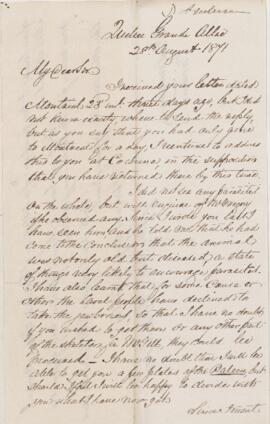 D Anderson
Quebec Grande Allée
28th August 1871
My dear Sir
I received your letter dated
Montreal 23d inst. three days ago, but I did
not know exactly where to send the reply,
but as you say that you had only gone
to Montreal for a day I venture to address
this to you at Cacouna, in the supposition
that you have returned there by this time.
I did not see any parasites
on the whale, but will enquire of Mr Gregory
if he observed any. Since I wrote you last I
have seen him and he told me that he had
come to the conclusion that the animal
was not only old but diseased, a state
of things very likely to encourage parasites.
I have also learnt that for some cause or
other the Laval people have declined to
take the jawbones, so that I have no doubt
if you wished to get them or any other part
of the skeleton for McGill, they could be
procured — I have no doubt I will be
able to get you a few plates of the Baleen, but
should I fail I will be happy to divide with
you what I have now got.